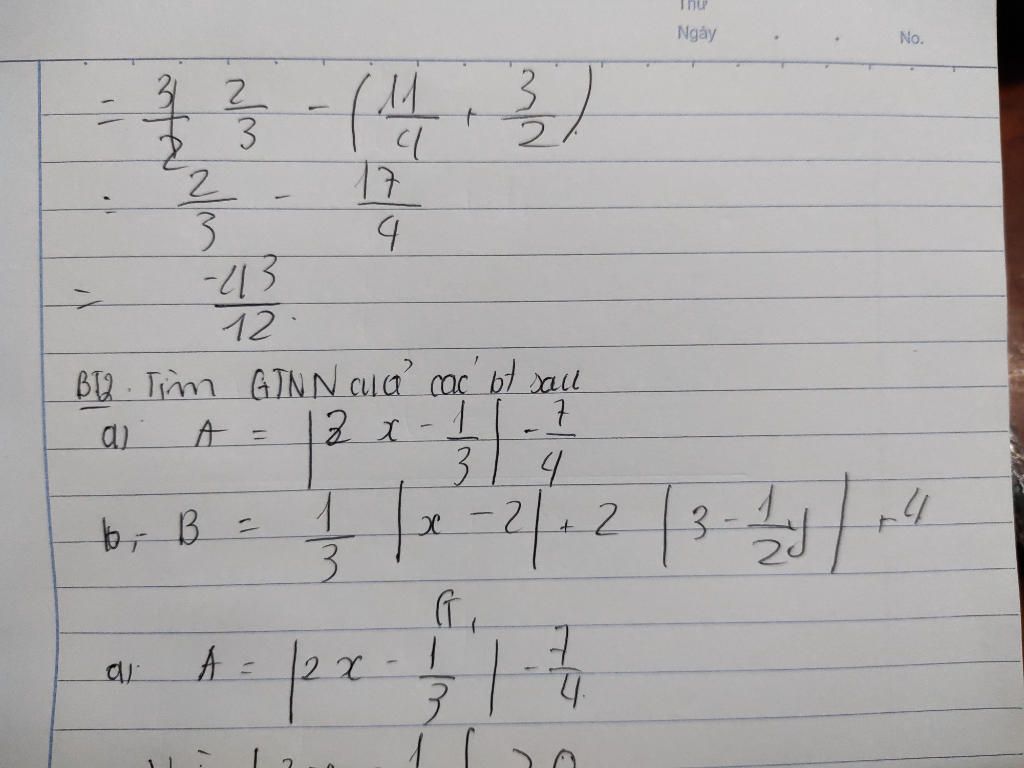 Thứ
Ngày . . No.
= 2/3 - (11/4 + 3/2)
= 2/3 - 17/4
= -43/12.
BT2. Tìm GTNN của các bt sau
a) A = |2x - 1/3| - 7/4
b, B = 1/3 |x - 2| + 2 |3 - 1/2 y| + 4
G,
a, A = |2x - 1/3| - 7/4